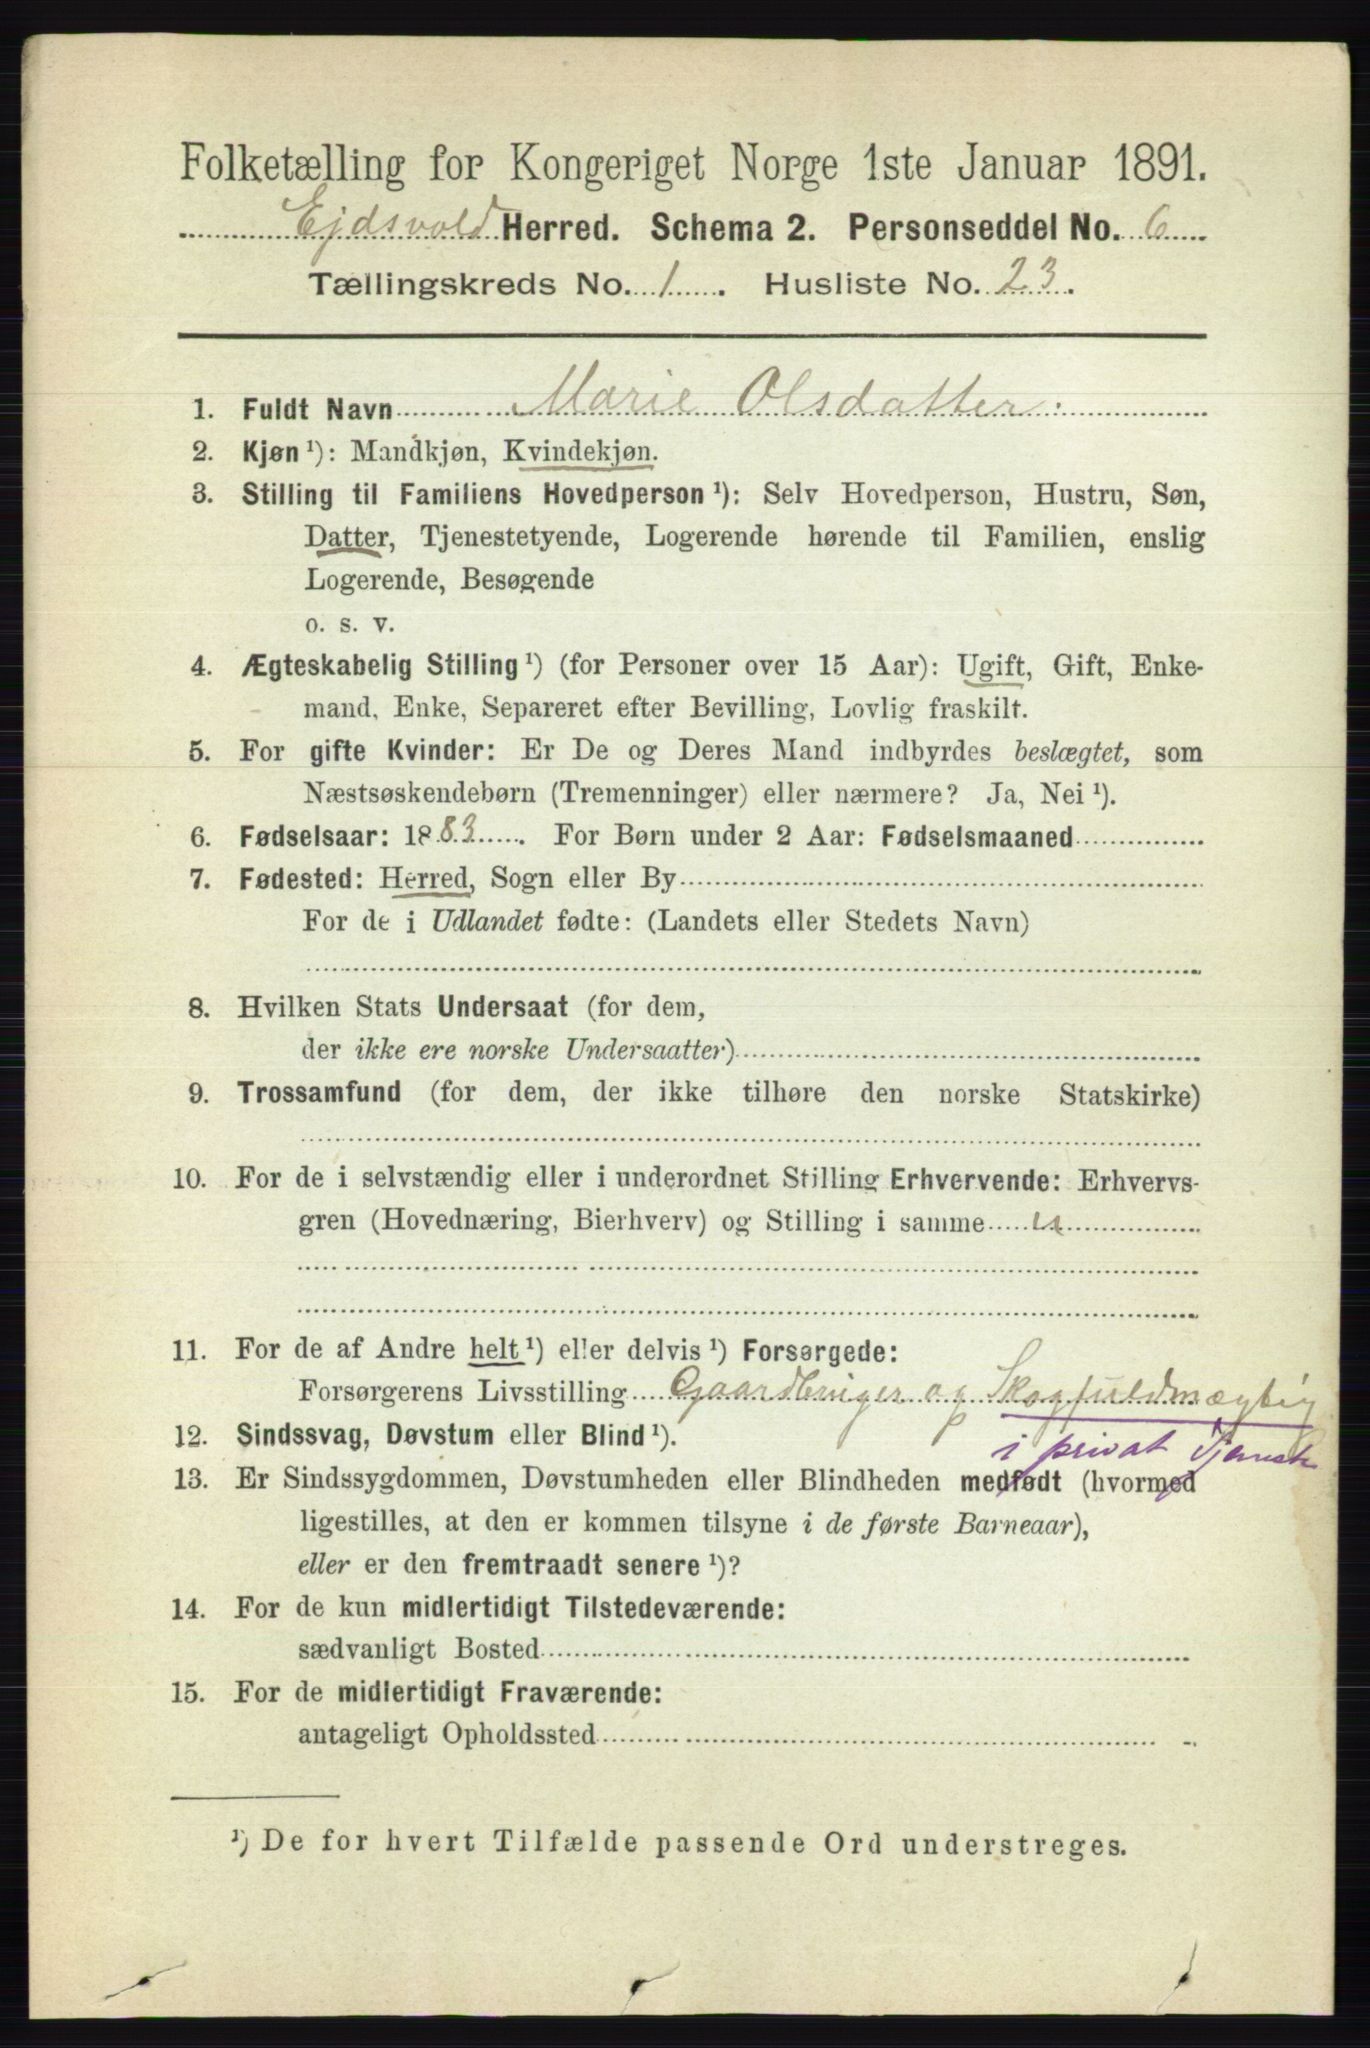 Folketælling for Kongeriget Norge 1ste Januar 1891.
Ejdsvold Herred. Schema 2. Personseddel No. 6
Tællingskreds No. 1. Husliste No. 23.
1. Fuldt Navn Marie Olsdatter.
2. Kjøn ¹): Mandkjøn, Kvindekjøn.
3. Stilling til Familiens Hovedperson ¹): Selv Hovedperson, Hustru, Søn,
Datter, Tjenestetyende, Logerende hørende til Familien, enslig
Logerende, Besøgende
o. s. v.
4. Ægteskabelig Stilling ¹) (for Personer over 15 Aar): Ugift, Gift, Enke-
mand, Enke, Separeret efter Bevilling, Lovlig fraskilt.
5. For gifte Kvinder: Er De og Deres Mand indbyrdes beslægtet, som
Næstsøskendebørn (Tremenninger) eller nærmere? Ja, Nei ¹).
6. Fødselsaar: 1883. For Børn under 2 Aar: Fødselsmaaned
7. Fødested: Herred, Sogn eller By
For de i Udlandet fødte: (Landets eller Stedets Navn)
8. Hvilken Stats Undersaat (for dem,
der ikke ere norske Undersaatter)
9. Trossamfund (for dem, der ikke tilhøre den norske Statskirke)
10. For de i selvstændig eller i underordnet Stilling Erhvervende: Erhvervs-
gren (Hovednæring, Bierhverv) og Stilling i samme
11. For de af Andre helt ¹) eller delvis ¹) Forsørgede:
Forsørgerens Livsstilling Gaardbruger og Skogfuldmægtig
i privat Tjeneste
12. Sindssvag, Døvstum eller Blind ¹).
13. Er Sindssygdommen, Døvstumheden eller Blindheden medfødt (hvormed
ligestilles, at den er kommen tilsyne i de første Barneaar),
eller er den fremtraadt senere ¹)?
14. For de kun midlertidigt Tilstedeværende:
sædvanligt Bosted
15. For de midlertidigt Fraværende:
antageligt Opholdssted
¹) De for hvert Tilfælde passende Ord understreges.